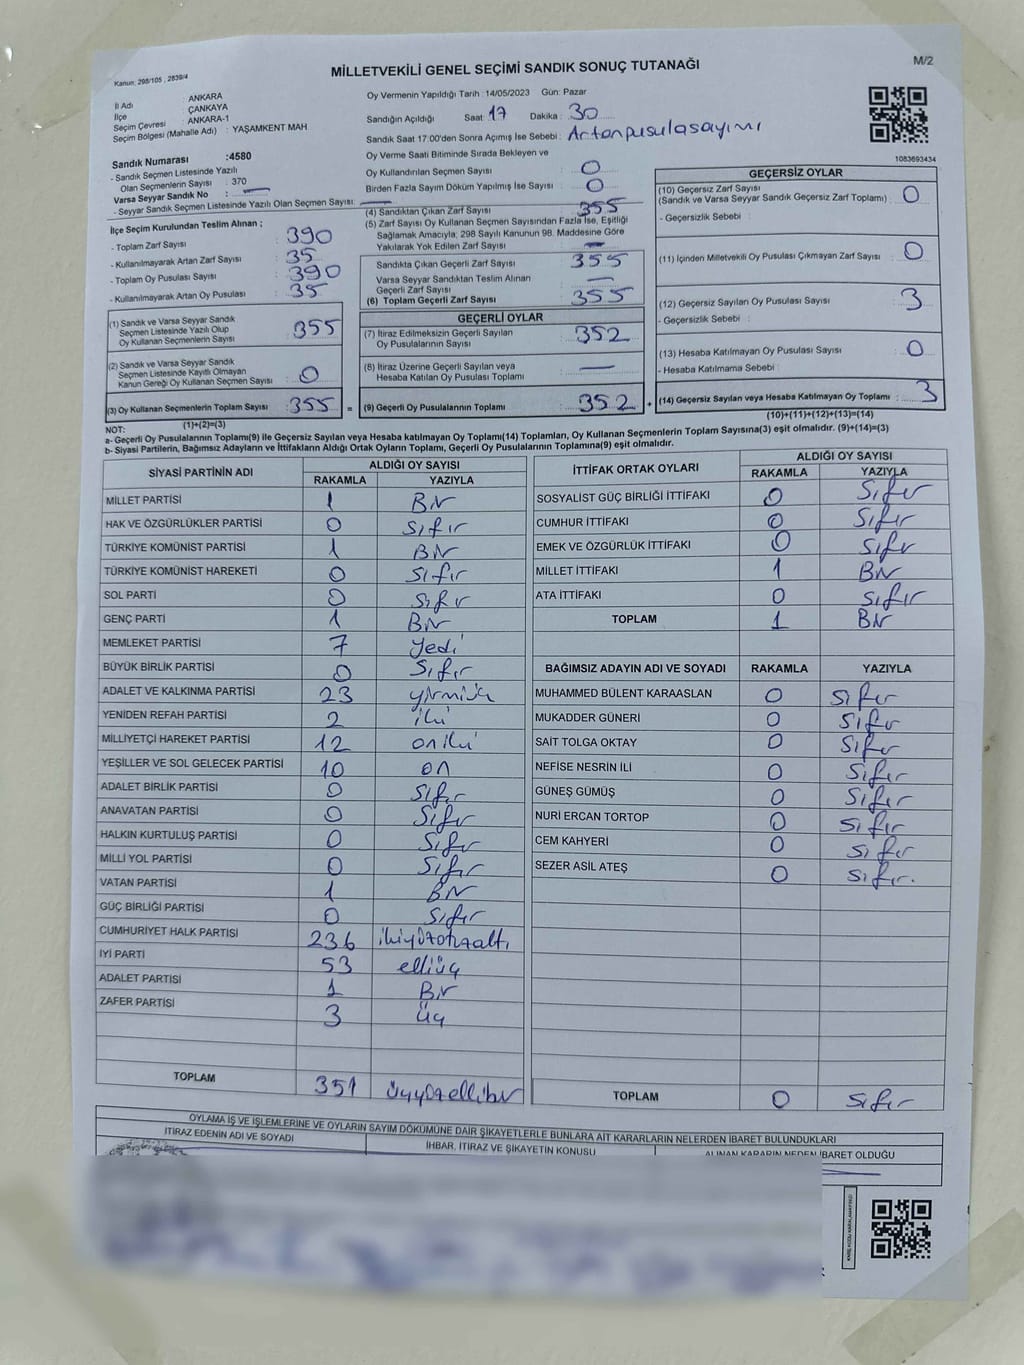 Kanun: 298/105 , 2839/4
MİLLETVEKİLİ GENEL SEÇİMİ SANDIK SONUÇ TUTANAĞI
M/2
İl Adı : ANKARA
İlçe : ÇANKAYA
Seçim Çevresi : ANKARA-1
Seçim Bölgesi (Mahalle Adı) : YAŞAMKENT MAH
Sandık Numarası :4580
- Sandık Seçmen Listesinde Yazılı
Olan Seçmenlerin Sayısı : 370
Varsa Seyyar Sandık No : —
- Seyyar Sandık Seçmen Listesinde Yazılı Olan Seçmen Sayısı: —
Oy Vermenin Yapıldığı Tarih :14/05/2023 Gün: Pazar
Sandığın Açıldığı Saat: 17 Dakika : 30
Sandık Saat 17:00'den Sonra Açılmış İse Sebebi : Artanpusulasayımı
Oy Verme Saati Bitiminde Sırada Bekleyen ve
Oy Kullandırılan Seçmen Sayısı : 0
Birden Fazla Sayım Döküm Yapılmış İse Sayısı : 0
1083693434
İlçe Seçim Kurulundan Teslim Alınan ;
- Toplam Zarf Sayısı : 390
- Kullanılmayarak Artan Zarf Sayısı : 35
- Toplam Oy Pusulası Sayısı : 390
- Kullanılmayarak Artan Oy Pusulası : 35
(1) Sandık ve Varsa Seyyar Sandık
Seçmen Listesinde Yazılı Olup
Oy Kullanan Seçmenlerin Sayısı : 355
(2) Sandık ve Varsa Seyyar Sandık
Seçmen Listesinde Kayıtlı Olmayan
Kanun Gereği Oy Kullanan Seçmen Sayısı : 0
(3) Oy Kullanan Seçmenlerin Toplam Sayısı : 355 =
(1)+(2)=(3)
(4) Sandıktan Çıkan Zarf Sayısı : 355
(5) Zarf Sayısı Oy Kullanan Seçmen Sayısından Fazla İse, Eşitliği
Sağlamak Amacıyla; 298 Sayılı Kanunun 98. Maddesine Göre
Yakılarak Yok Edilen Zarf Sayısı : —
Sandıkta Çıkan Geçerli Zarf Sayısı : 355
Varsa Seyyar Sandıktan Teslim Alınan
Geçerli Zarf Sayısı : —
(6) Toplam Geçerli Zarf Sayısı : 355
GEÇERLİ OYLAR
(7) İtiraz Edilmeksizin Geçerli Sayılan
Oy Pusulalarının Sayısı : 352
(8) İtiraz Üzerine Geçerli Sayılan veya
Hesaba Katılan Oy Pusulası Toplamı : —
(9) Geçerli Oy Pusulalarının Toplamı : 352 +
GEÇERSİZ OYLAR
(10) Geçersiz Zarf Sayısı
(Sandık ve Varsa Seyyar Sandık Geçersiz Zarf Toplamı) : 0
- Geçersizlik Sebebi :
(11) İçinden Milletvekili Oy Pusulası Çıkmayan Zarf Sayısı : 0
(12) Geçersiz Sayılan Oy Pusulası Sayısı : 3
- Geçersizlik Sebebi :
(13) Hesaba Katılmayan Oy Pusulası Sayısı : 0
- Hesaba Katılmama Sebebi :
(14) Geçersiz Sayılan veya Hesaba Katılmayan Oy Toplamı : 3
(10)+(11)+(12)+(13)=(14)
NOT:
a- Geçerli Oy Pusulalarının Toplamı(9) ile Geçersiz Sayılan veya Hesaba katılmayan Oy Toplamı(14) Toplamları, Oy Kullanan Seçmenlerin Toplam Sayısına(3) eşit olmalıdır. (9)+(14)=(3)
b- Siyasi Partilerin, Bağımsız Adayların ve İttifakların Aldığı Ortak Oyların Toplamı, Geçerli Oy Pusulalarının Toplamına(9) eşit olmalıdır.
SİYASİ PARTİNİN ADI ALDIĞI OY SAYISI
RAKAMLA YAZIYLA
MİLLET PARTİSİ 1 Bir
HAK VE ÖZGÜRLÜKLER PARTİSİ 0 sıfır
TÜRKİYE KOMÜNİST PARTİSİ 1 Bir
TÜRKİYE KOMÜNİST HAREKETİ 0 sıfır
SOL PARTİ 0 sıfır
GENÇ PARTİ 1 Bir
MEMLEKET PARTİSİ 7 yedi
BÜYÜK BİRLİK PARTİSİ 0 sıfır
ADALET VE KALKINMA PARTİSİ 23 yirmiüç
YENİDEN REFAH PARTİSİ 2 iki
MİLLİYETÇİ HAREKET PARTİSİ 12 oniki
YEŞİLLER VE SOL GELECEK PARTİSİ 10 on
ADALET BİRLİK PARTİSİ 0 sıfır
ANAVATAN PARTİSİ 0 sıfır
HALKIN KURTULUŞ PARTİSİ 0 sıfır
MİLLİ YOL PARTİSİ 0 sıfır
VATAN PARTİSİ 1 Bir
GÜÇ BİRLİĞİ PARTİSİ 0 sıfır
CUMHURİYET HALK PARTİSİ 236 ikiyüzotuzaltı
İYİ PARTİ 53 elliüç
ADALET PARTİSİ 1 Bir
ZAFER PARTİSİ 3 üç
TOPLAM 351 üçyüzellibir
İTTİFAK ORTAK OYLARI ALDIĞI OY SAYISI
RAKAMLA YAZIYLA
SOSYALİST GÜÇ BİRLİĞİ İTTİFAKI 0 sıfır
CUMHUR İTTİFAKI 0 sıfır
EMEK VE ÖZGÜRLÜK İTTİFAKI 0 sıfır
MİLLET İTTİFAKI 1 Bir
ATA İTTİFAKI 0 sıfır
TOPLAM 1 Bir
BAĞIMSIZ ADAYIN ADI VE SOYADI RAKAMLA YAZIYLA
MUHAMMED BÜLENT KARAASLAN 0 sıfır
MUKADDER GÜNERİ 0 sıfır
SAİT TOLGA OKTAY 0 sıfır
NEFİSE NESRİN İLİ 0 sıfır
GÜNEŞ GÜMÜŞ 0 sıfır
NURİ ERCAN TORTOP 0 sıfır
CEM KAHYERİ 0 sıfır
SEZER ASİL ATEŞ 0 sıfır.
TOPLAM 0 sıfır
OYLAMA İŞ VE İŞLEMLERİNE VE OYLARIN SAYIM DÖKÜMÜNE DAİR ŞİKAYETLERLE BUNLARA AİT KARARLARIN NELERDEN İBARET BULUNDUKLARI
İTİRAZ EDENİN ADI VE SOYADI İHBAR, İTİRAZ VE ŞİKAYETİN KONUSU ALINAN KARARIN NEDEN İBARET OLDUĞU